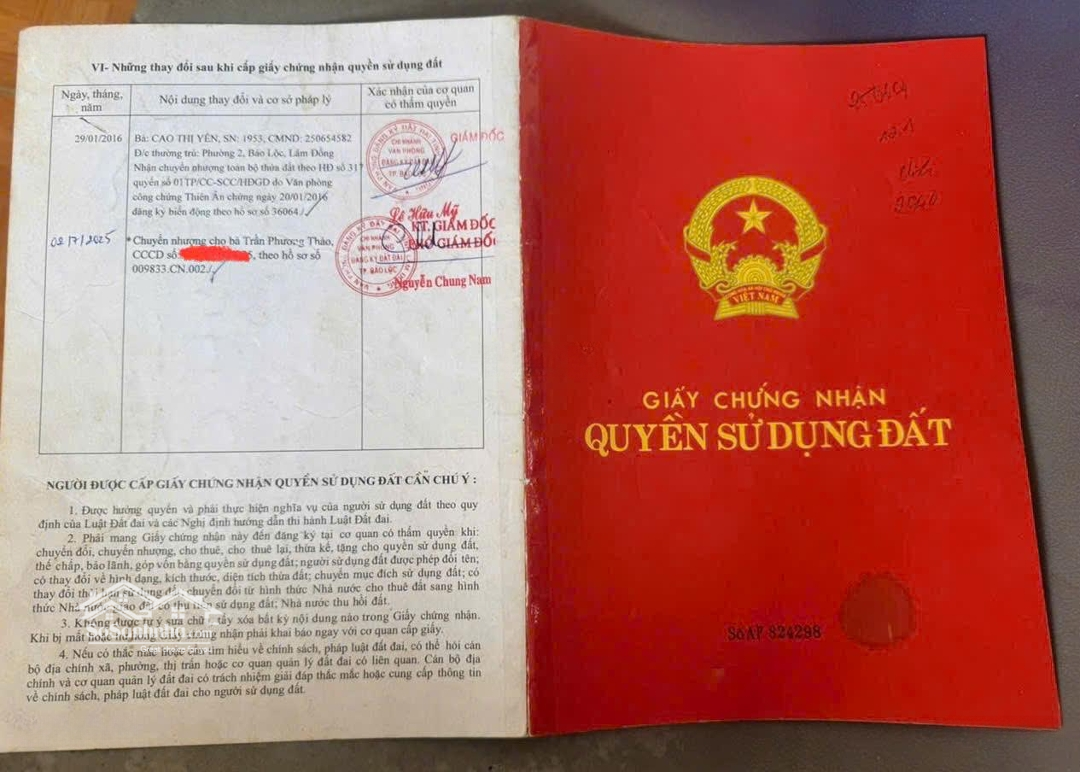 VI- Những thay đổi sau khi cấp giấy chứng nhận quyền sử dụng đất
Ngày, tháng, năm
Nội dung thay đổi và cơ sở pháp lý
Xác nhận của cơ quan có thẩm quyền
29/01/2016
Bà: CAO THỊ YẾN, SN: 1953, CMND: 250654582
Đ/c thường trú: Phường 2, Bảo Lộc, Lâm Đồng
Nhận chuyển nhượng toàn bộ thửa đất theo HĐ số 317
quyển số 01TP/CC-SCC/HĐGD do Văn phòng
công chứng Thiên Ân chứng ngày 20/01/2016
đăng ký biến động theo hồ sơ số 36064./
GIÁM ĐỐC
CHI NHÁNH
VĂN PHÒNG
ĐĂNG KÝ ĐẤT ĐAI
Lê Hữu Mỹ
02/7/2025
* Chuyển nhượng cho bà Trần Phương Thảo,
CCCD số:
, theo hồ sơ số
009833.CN.002./
KT.GIÁM ĐỐC
PHÓ GIÁM ĐỐC
CHI NHÁNH
VĂN PHÒNG
ĐĂNG KÝ ĐẤT ĐAI
TP. BẢO LỘC
Nguyễn Chung Nam
NGƯỜI ĐƯỢC CẤP GIẤY CHỨNG NHẬN QUYỀN SỬ DỤNG ĐẤT CẦN CHÚ Ý :
1. Được hưởng quyền và phải thực hiện nghĩa vụ của người sử dụng đất theo quy
định của Luật Đất đai và các Nghị định hướng dẫn thi hành Luật Đất đai.
2. Phải mang Giấy chứng nhận này đến đăng ký tại cơ quan có thẩm quyền khi:
chuyển đổi, chuyển nhượng, cho thuê, cho thuê lại, thừa kế, tặng cho quyền sử dụng đất,
thế chấp, bảo lãnh, góp vốn bằng quyền sử dụng đất; người sử dụng đất được phép đổi tên;
có thay đổi về hình dạng, kích thước, diện tích thửa đất; chuyển mục đích sử dụng đất; có
thay đổi thời hạn sử dụng đất; chuyển đổi từ hình thức Nhà nước cho thuê đất sang hình
thức Nhà nước giao đất có thu tiền sử dụng đất; Nhà nước thu hồi đất.
3. Không được tự ý sửa chữa, tẩy xóa bất kỳ nội dung nào trong Giấy chứng nhận.
Khi bị mất hoặc hư hỏng Giấy chứng nhận phải khai báo ngay với cơ quan cấp giấy.
4. Nếu có thắc mắc hoặc cần tìm hiểu về chính sách, pháp luật đất đai, có thể hỏi cán
bộ địa chính xã, phường, thị trấn hoặc cơ quan quản lý đất đai có liên quan. Cán bộ địa
chính và cơ quan quản lý đất đai có trách nhiệm giải đáp thắc mắc hoặc cung cấp thông tin
về chính sách, pháp luật đất đai cho người sử dụng đất.
VIỆT NAM
GIẤY CHỨNG NHẬN
QUYỀN SỬ DỤNG ĐẤT
Số AF 824298